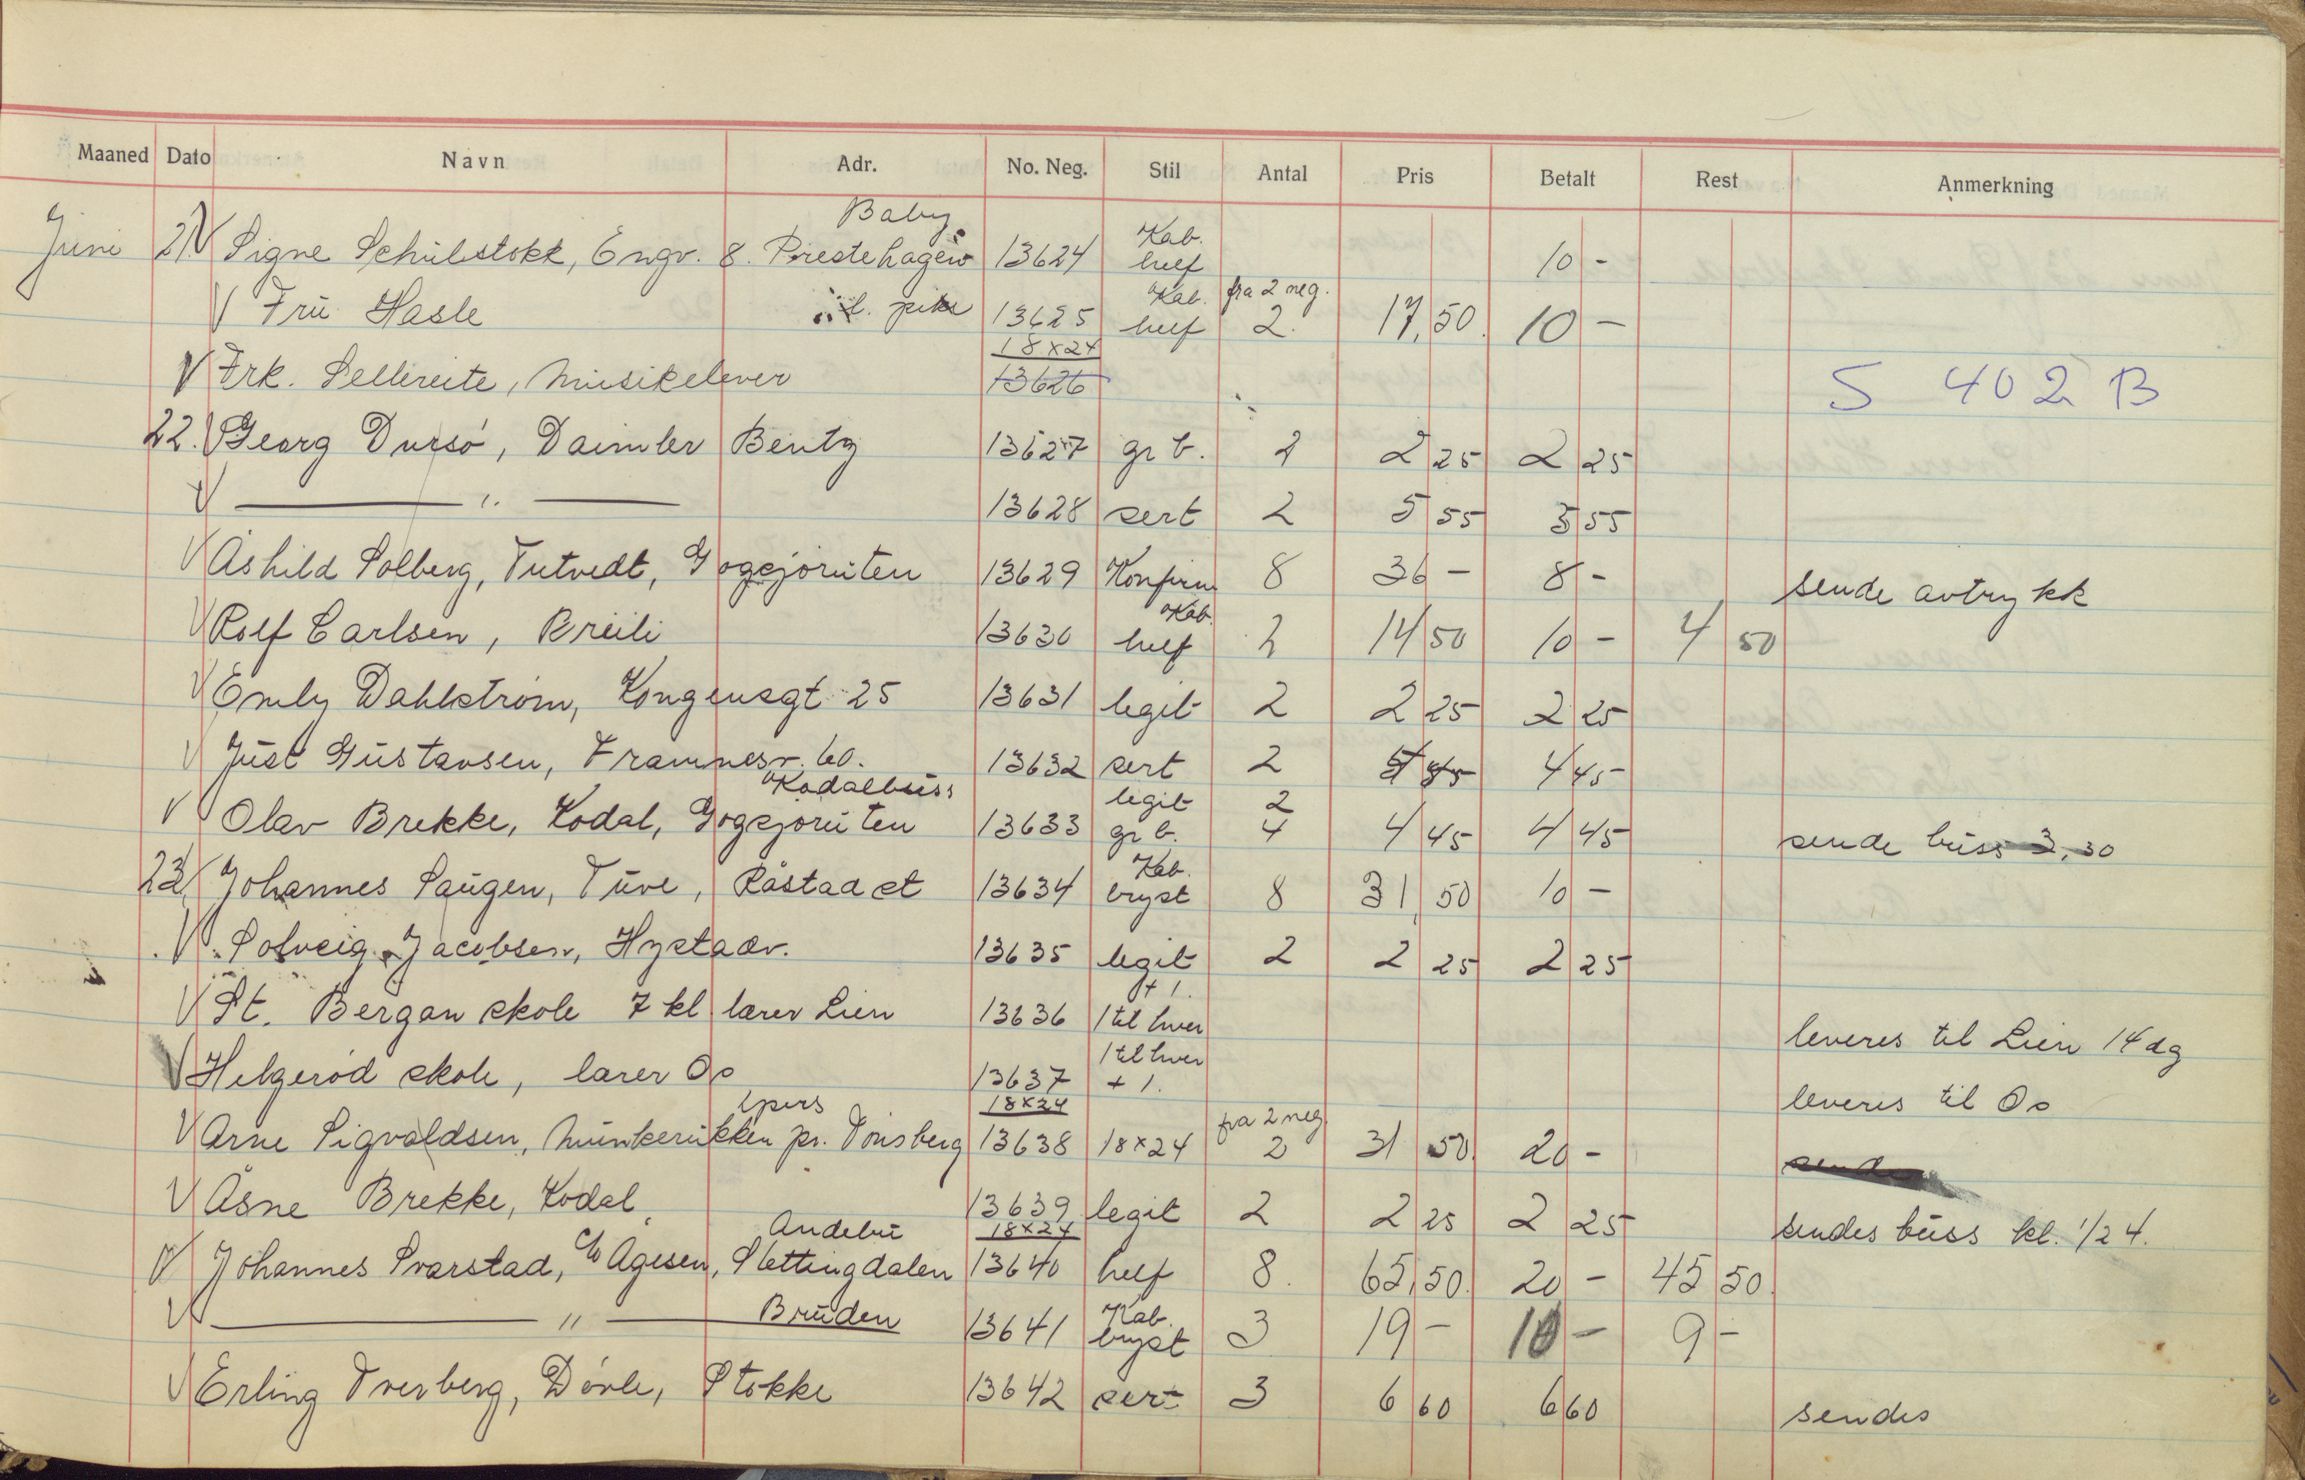 Maaned Dato Navn Adr. No. Neg. Stil Antal Pris Betalt Rest Anmerkning
Baby
Kab.
Juni 21. V Signe Schulstokk, Engv. 8. Prestehagen 13624 helf 10 -
Kab. fra 2 neg.
V Fru Hasle l. pike 13625 helf 2. 17,50. 10 -
18x24
V Frk. Sellereite, Musikelever 13626 S 402 B
22. V Georg Dursó, Daimler Bentz 13627 gr b. 2 2 25 2 25
V — " — 13628 sert 2 5 55 5 55
V Åshild Solberg, Tutvedt, Gogsjøruten 13629 Konfirm 8 36 - 8 - sende avtrykk
Kab.
V Rolf Carlsen, Breili 13630 helf 2 14 50 10 - 4 50
V Emly Dahlstrøm, Kongensgt 25 13631 legit 2 2 25 2 25
V Just Gustavsen, Framnesv. 60. 13632 sert 2 4 45 4 45
Kodalbuss legit 2
V Olav Brekke, Kodal, Gogsjøruten 13633 gr b. 4 4 45 4 45 sende buss 3,30
Kab.
23 V Johannes Haugen, Tuve, Råstadet 13634 bryst 8 31,50 10 -
V Solveig Jacobsen, Hystadv. 13635 legit 2 2 25 2 25
+ 1.
V St. Bergan skole 7 kl lærer Lien 13636 1 til hver leveres til Lien 14 dg
1 til hver
V Helgerød skole, lærer Os 13637 + 1. leveres til Os
2 pers 18x24 fra 2 neg.
V Arne Sigvaldsen, Munkerükken pr. Tønsberg 13638 18x24 2 31 50. 20 - sendes
V Åsne Brekke, Kodal 13639 legit 2 2 25 2 25 sendes buss kl. 1/2 4.
Andebu 18x24
V Johannes Svarstad, c/o Agesen, Slettingdalen 13640 helf 8. 65,50. 20 - 45 50.
Kab.
V — " — Bruden 13641 bryst 3 19 - 10 - 9 -
V Erling Tverberg, Døvle, Stokke 13642 sert 3 6 60 6 60 sendes